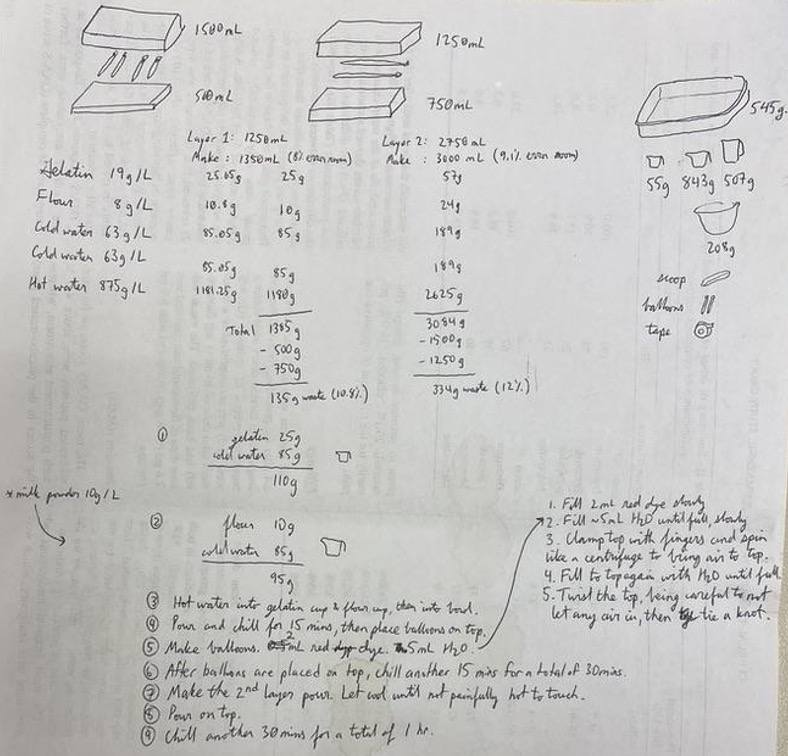 1500mL
500mL
1250mL
750mL
545g
Layer 1: 1250mL
Make : 1350mL (8% error room)
Layer 2: 2750mL
Make : 3000 mL (9.1% error room)
Gelatin 19g/L 25.65g 25g 57g
Flour 8g/L 10.8g 10g 24g
Cold water 63g/L 85.05g 85g 189g
Cold water 63g/L 85.05g 85g 189g
Hot water 875g/L 1181.25g 1180g 2625g
Total 1385g 3084g
- 500g -1500g
- 750g -1250g
135g waste (10.8%) 334g waste (12%)
55g 843g 507g
208g
scoop
balloons
tape
①
gelatin 25g
cold water 85g
110g
* milk powder 10g/L
②
flour 10g
cold water 85g
95g
③ Hot water into gelatin cup & flour cup, then into bowl.
④ Pour and chill for 15 mins, then place balloons on top.
⑤ Make balloons. 2mL red dye. ~5mL H₂O.
⑥ After balloons are placed on top, chill another 15 mins for a total of 30mins.
⑦ Make the 2nd layer pour. Let cool until not painfully hot to touch.
⑧ Pour on top.
⑨ Chill another 30mins for a total of 1 hr.
1. Fill 2mL red dye slowly
2. Fill ~5mL H₂O until full, slowly
3. Clamp top with fingers and spin
like a centrifuge to bring air to top.
4. Fill to top again with H₂O until full
5. Twist the top, being careful to not
let any air in, then tie a knot.